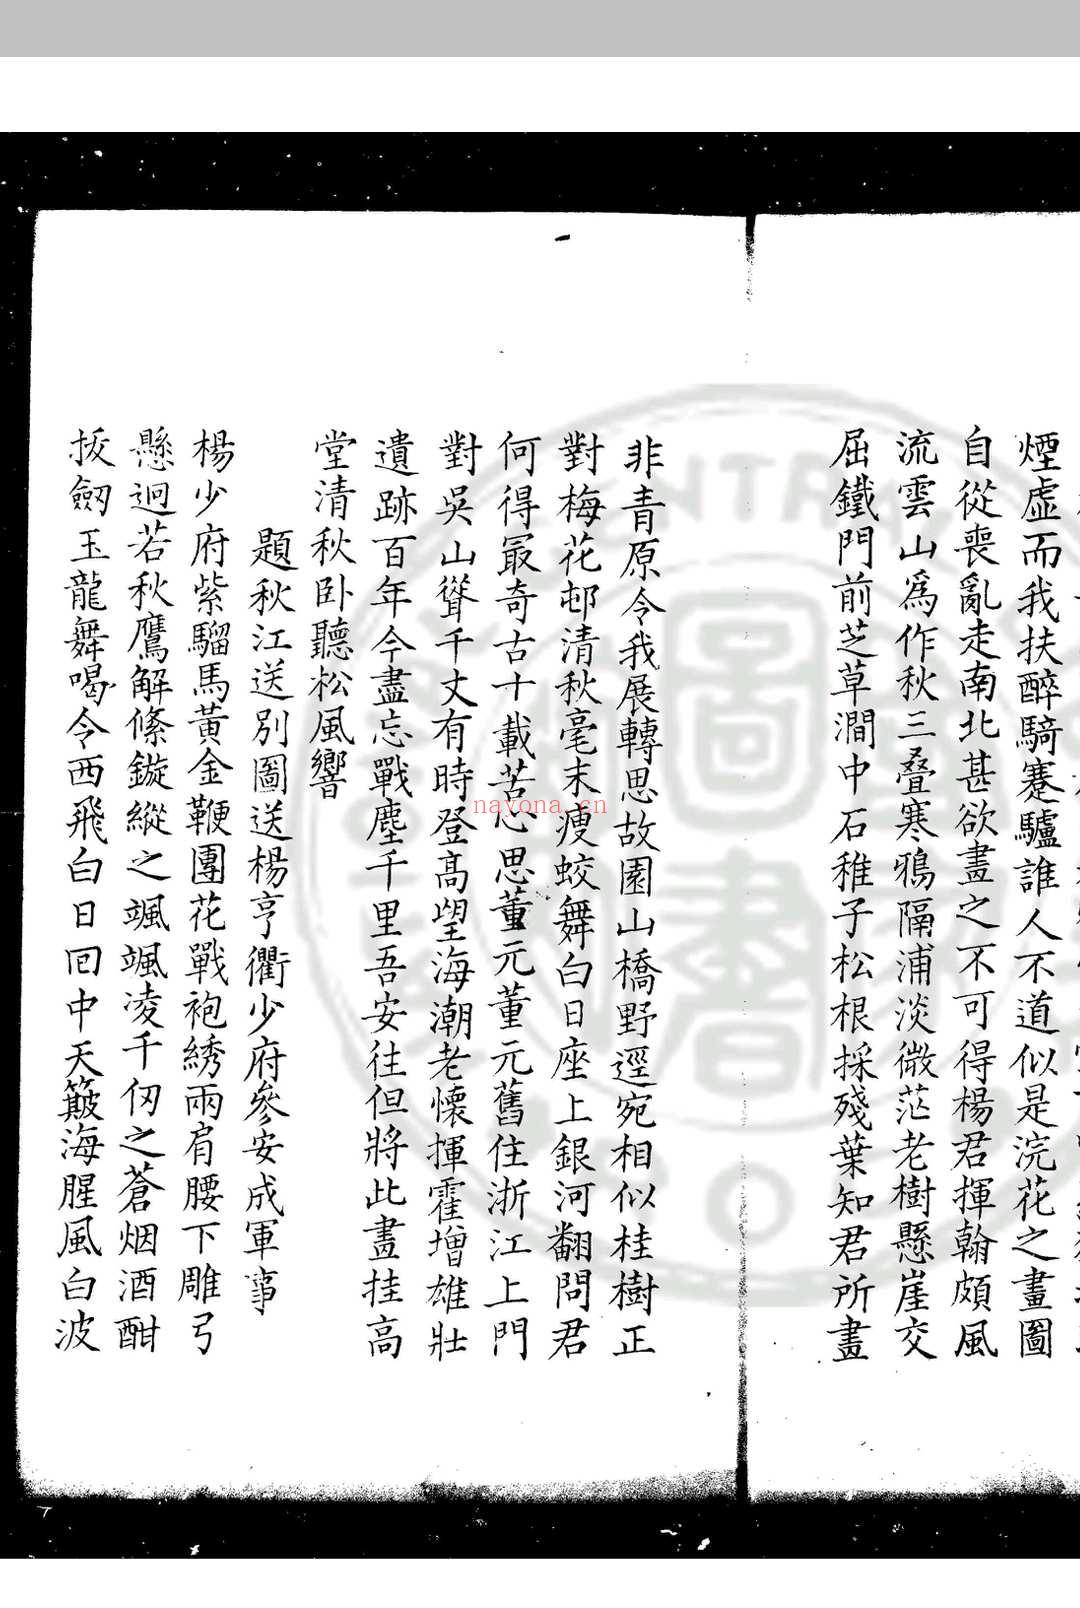 煙虛而我扶醉騎蹇驢誰人不道似是浣花之畫圖
自從喪亂走南北甚欲畫之不可得楊君揮翰頗風
流雲山為作秋三叠寒鴉隔浦淡微茫老樹懸崖交
屈鐵門前芝草澗中石稚子松根採殘葉知君所畫
非青原令我展轉思故園山橋野逕宛相似桂樹正
對梅花邨清秋毫末瘦蛟舞白日座上銀河翻問君
何得冣奇古十載苦心思董元董元舊住浙江上門
對吳山聳千丈有時登高望海潮老懷揮霍增雄壯
遺跡百年今盡忘戰塵千里吾安往但將此畫挂高
堂清秋卧聽松風響
題秋江送別圖送楊亨衢少府參安成軍事
楊少府紫騮馬黃金鞭團花戰袍綉兩肩腰下雕弓
懸迥若秋鷹解絛鏇縱之颯颯凌千仞之蒼烟酒酣
拔劒玉龍舞喝令西飛白日回中天簸海腥風白波
nayona.cn